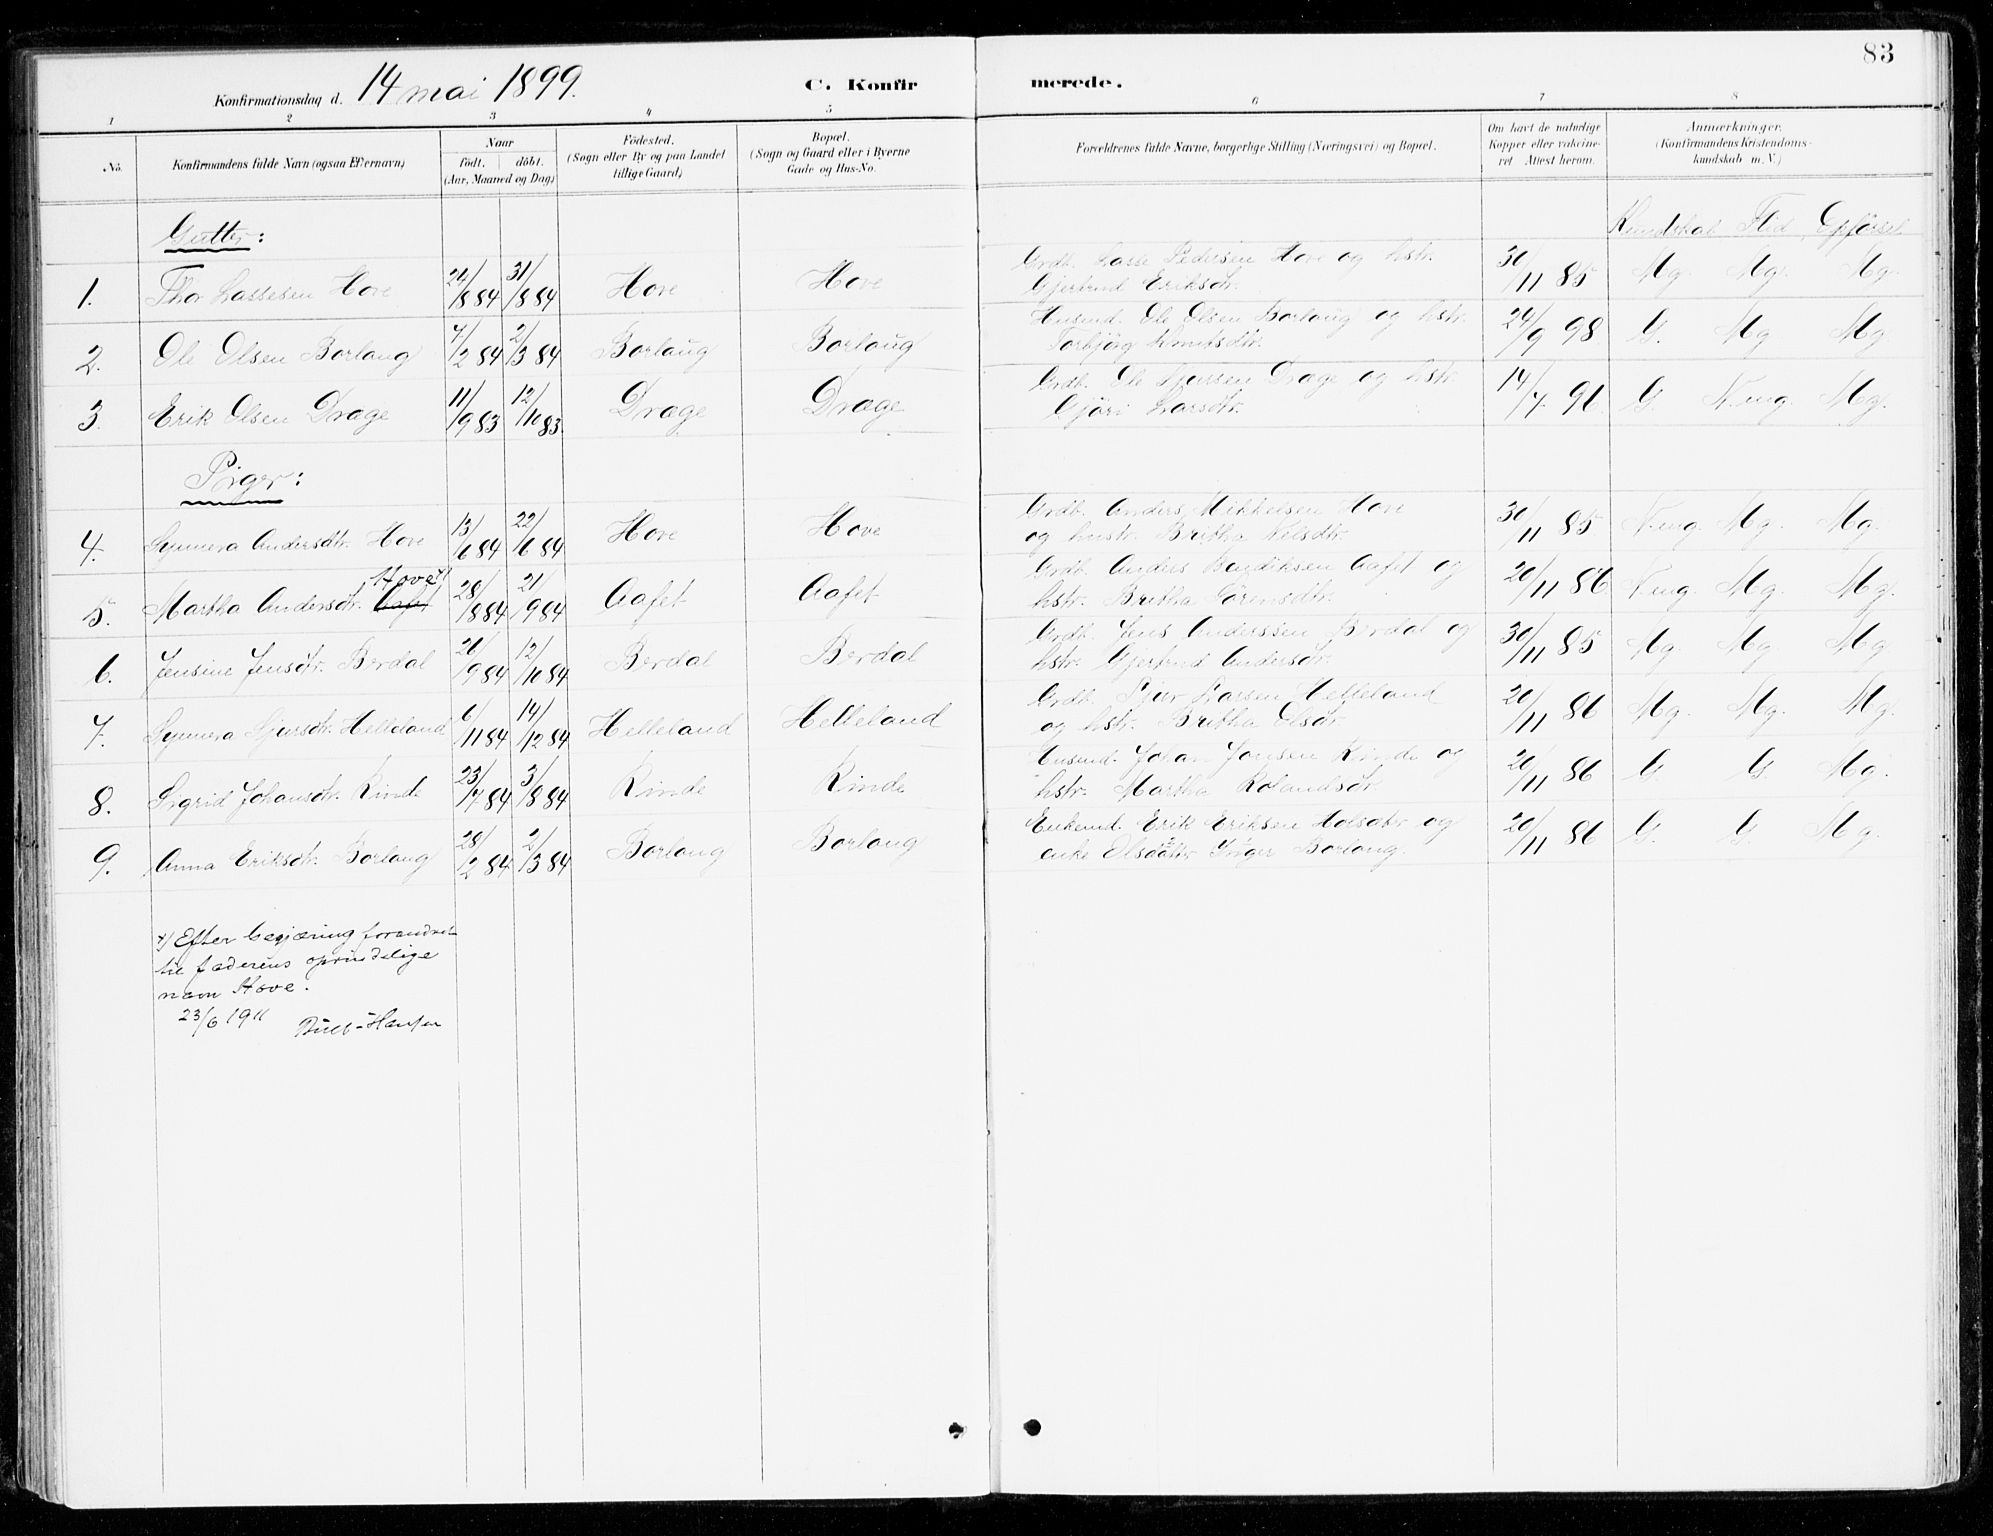 83
Konfirmationsdag d. 14 mai 1899.
C. Konfirmerede.
1 2 3 4 5 6 7 8
No. Konfirmandens fulde Navn (ogsaa Efternavn)
Naar
født. døbt.
(Aar, Maaned og Dag)
Fødested.
(Sogn eller By og paa Landet
tillige Gaard)
Bopæl.
(Sogn og Gaard eller i Byerne
Gade og Hus-No.
Forældrenes fulde Navne, borgerlige Stilling (Næringsvei) og Bopæl.
Om havt de naturlige
Kopper eller vakcine-
ret Attest herom.
Anmærkninger.
(Konfirmandens Kristendoms-
kundskab m. V.)
Gutter:
Kundskab Flid Opførsel
1. Thor Lassesen Hove 24/8 84 31/8 84 Hove Hove Grdb. Lasse Pedersen Hove og hstr.
Gjertrud Eriksdtr. 30/11 85 Mg. Mg. Mg.
2. Ole Olsen Borlaug 7/2 84 2/3 84 Borlaug Borlaug Husmd. Ole Olsen Borlaug og hstr.
Torbjørg Knutsdtr. 24/9 98 G. Mg Mg
3. Erik Olsen Drage 11/9 83 12/10 83 Dræge Dræge Grdb. Ole Sjursen Dræge og hstr.
Gjøri Larsdtr. 14/7 96 G. N.mg. Mg.
Piger:
4. Synneva Andersdtr. Hove 13/6 84 22/6 84 Hove Hove Grdb. Anders Mikkelsen Hove
og hustr. Britha Nelsdtr. 30/11 85 N.mg. Mg. Mg.
5. Martha Andersdtr. Aafet Hove x) 28/8 84 21/9 84 Aafet Aafet Grdb. Anders Bendiksen Aafet og
hstr. Britha Sørensdtr. 20/11 86 N.mg. Mg. Mg.
6. Jensine Jensdtr. Berdal 21/9 84 12/10 84 Berdal Berdal Grdb. Jens Anderssen Berdal og
hstr. Gjertrud Andersdtr. 30/11 85 Mg. Mg. Mg.
7. Synneva Sjursdtr. Helleland 6/11 84 14/12 84 Helleland Helleland Grdb. Sjur Larsen Helleland
og hstr. Britha Olsdtr. 20/11 86 Mg. Mg. Mg.
8. Sigrid Johansdtr. Rinde 23/7 84 3/8 84 Rinde Rinde Husmd. Johan Jonsen Rinde og
hstr. Martha Rolandsdtr. 20/11 86 G G. Mg.
9. Anna Eriksdtr. Borlaug 28/2 84 2/3 84 Borlaug Borlaug Enkemd. Erik Eriksen og
enke Inger Borlaug. 20/11 86 G. G. Mg.
x) Efter begjæring forandret
til faderens oprindelige
navn Hove.
23/6 1911 Bull-Hansen